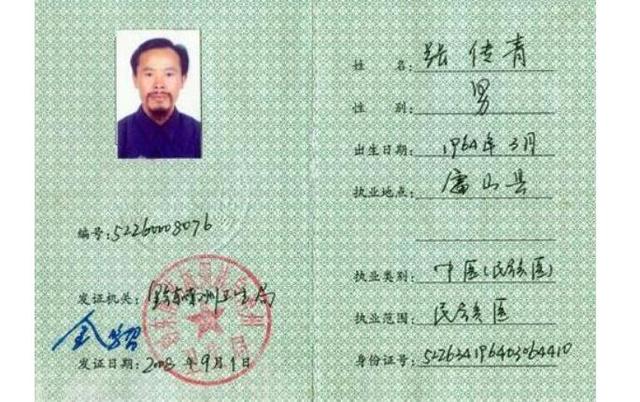 姓 名:张传青
性 别:男
出生日期:1964年3月
执业地点:雷山县
执业类别:中医(民族医)
执业范围:民族医
编号:52260008076
发证机关:黔东南州卫生局
发证日期:2008年9月1日